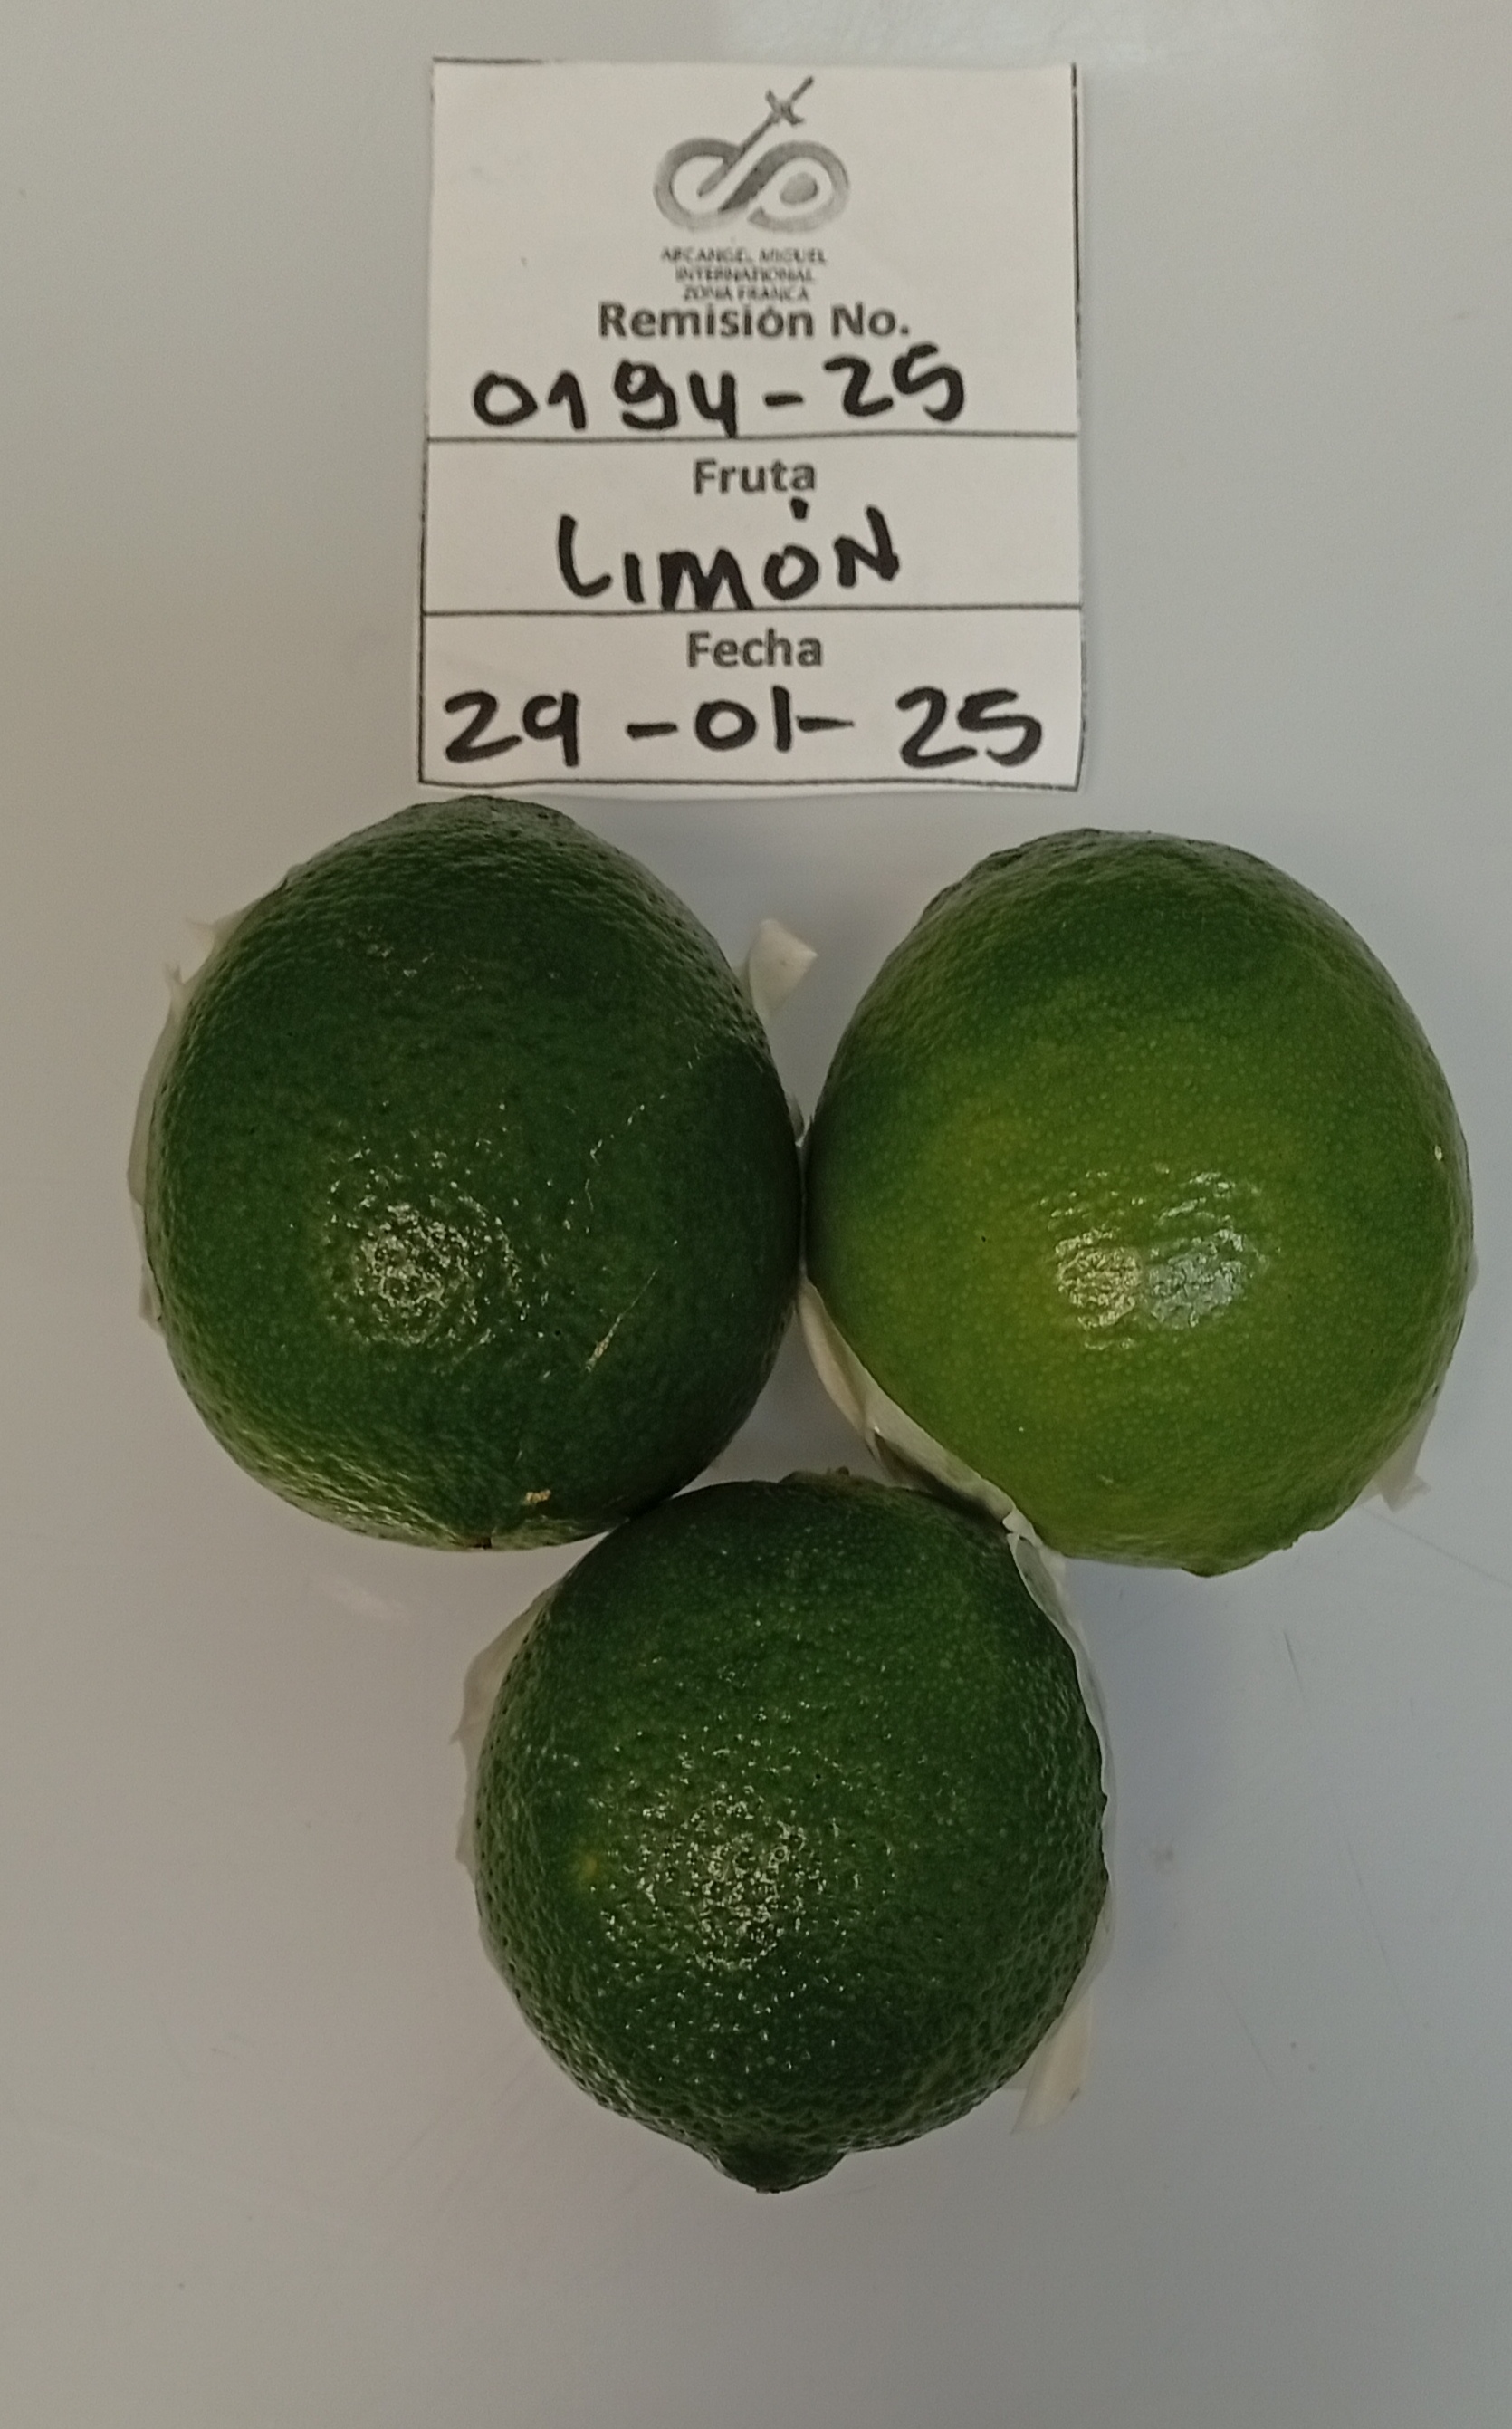 ARCANGEL MIGUEL
INTERNATIONAL
ZONA FRANCA
Remisión No.
0194-25
Fruta
LIMÓN
Fecha
29-01-25